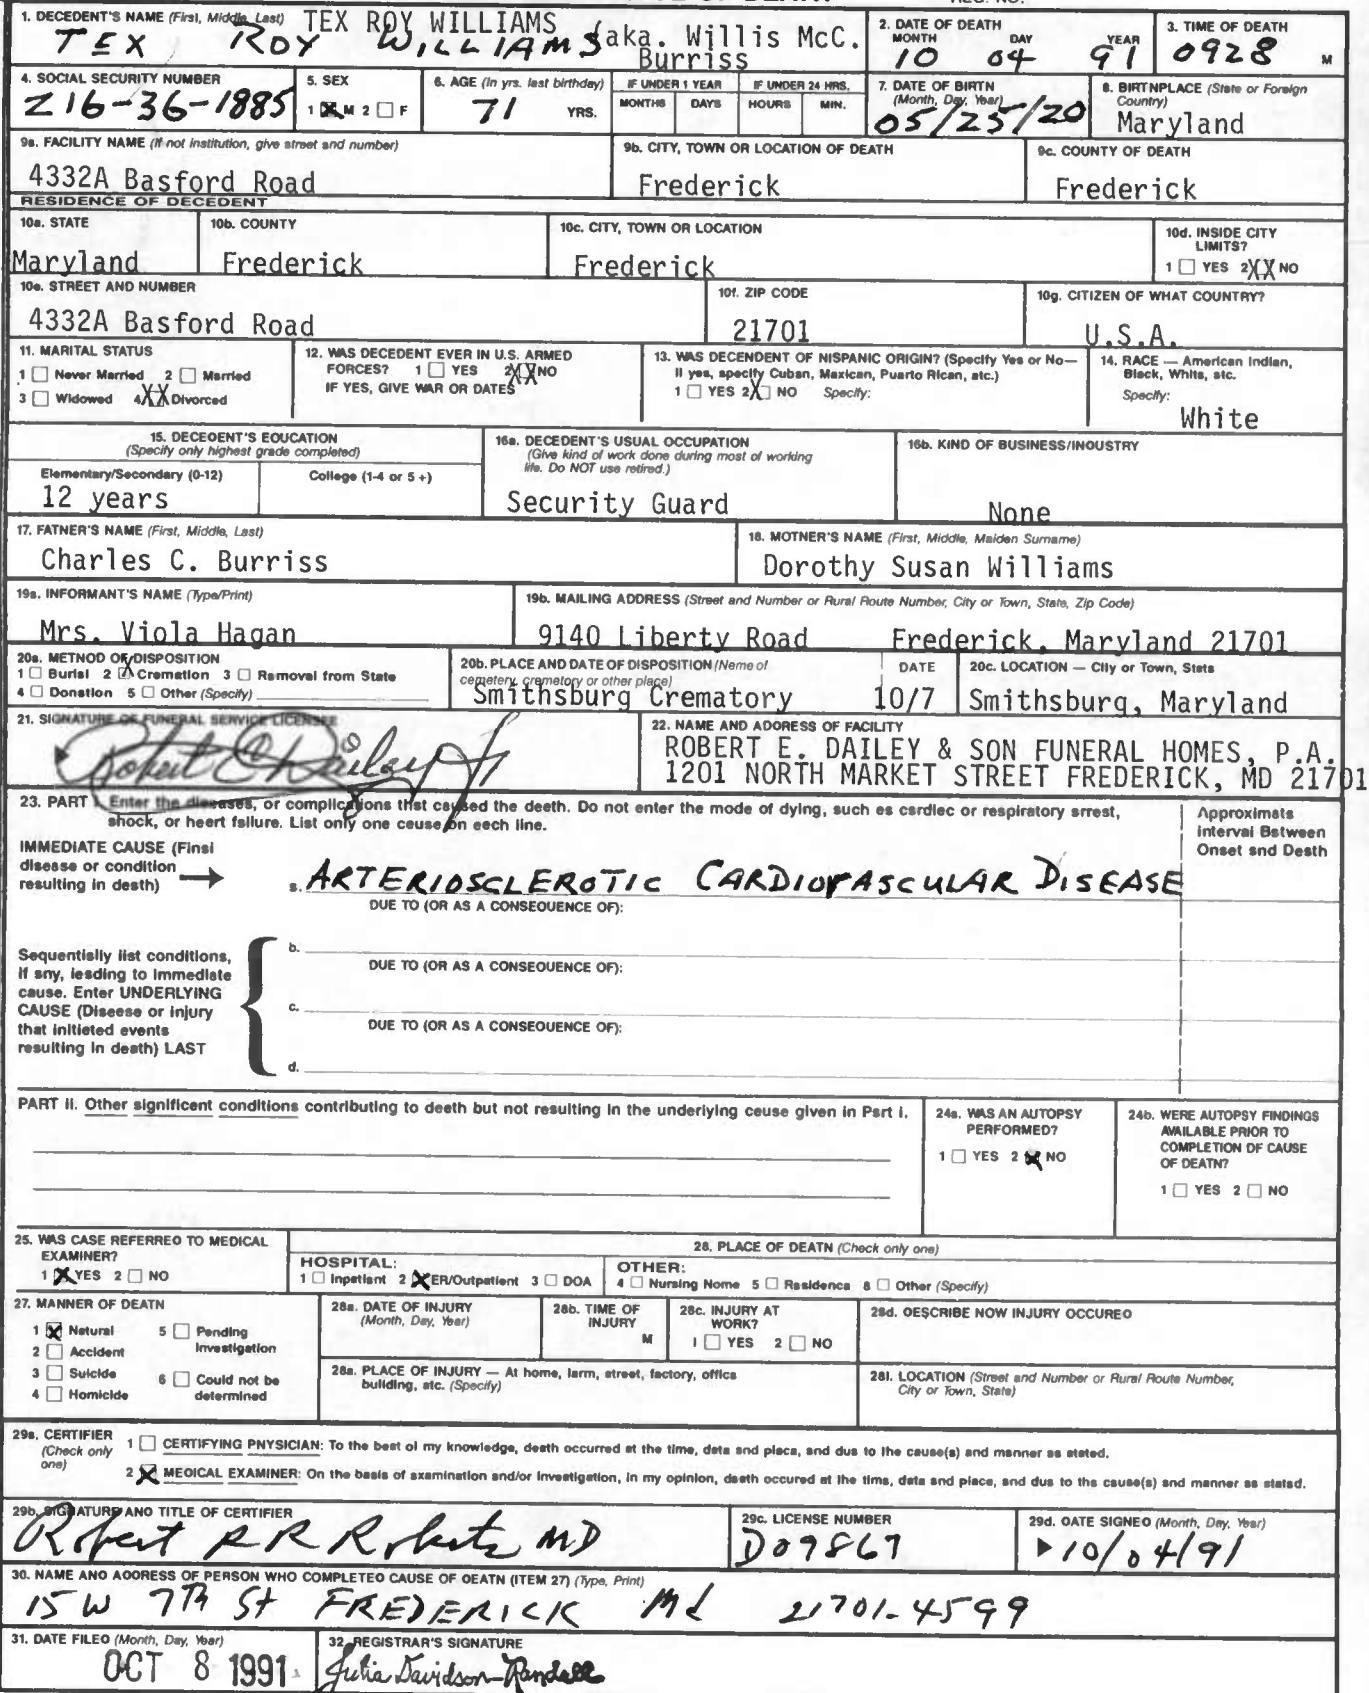 1. DECEDENT'S NAME (First, Middle, Last) TEX ROY WILLIAMS
TEX ROY WILLIAMS aka. Willis McC. Burriss
2. DATE OF DEATH
MONTH DAY YEAR
10 04 91
3. TIME OF DEATH
0928 M
4. SOCIAL SECURITY NUMBER
216-36-1885
5. SEX
1 X M 2 ☐ F
6. AGE (In yrs. last birthday)
71 YRS.
IF UNDER 1 YEAR
MONTHS DAYS
IF UNDER 24 HRS.
HOURS MIN.
7. DATE OF BIRTH
(Month, Day, Year)
05/25/20
8. BIRTHPLACE (State or Foreign
Country)
Maryland
9a. FACILITY NAME (If not institution, give street and number)
4332A Basford Road
9b. CITY, TOWN OR LOCATION OF DEATH
Frederick
9c. COUNTY OF DEATH
Frederick
RESIDENCE OF DECEDENT
10a. STATE
Maryland
10b. COUNTY
Frederick
10c. CITY, TOWN OR LOCATION
Frederick
10d. INSIDE CITY
LIMITS?
1 ☐ YES 2 XX NO
10e. STREET AND NUMBER
4332A Basford Road
10f. ZIP CODE
21701
10g. CITIZEN OF WHAT COUNTRY?
U.S.A.
11. MARITAL STATUS
1 ☐ Never Married 2 ☐ Married
3 ☐ Widowed 4 XX Divorced
12. WAS DECEDENT EVER IN U.S. ARMED
FORCES? 1 ☐ YES 2 XX NO
IF YES, GIVE WAR OR DATES
13. WAS DECENDENT OF HISPANIC ORIGIN? (Specify Yes or No—
If yes, specify Cuban, Mexican, Puerto Rican, etc.)
1 ☐ YES 2 X NO Specify:
14. RACE — American Indian,
Black, White, etc.
Specify:
White
15. DECEDENT'S EDUCATION
(Specify only highest grade completed)
Elementary/Secondary (0-12) College (1-4 or 5+)
12 years
16a. DECEDENT'S USUAL OCCUPATION
(Give kind of work done during most of working
life. Do NOT use retired.)
Security Guard
16b. KIND OF BUSINESS/INDUSTRY
None
17. FATHER'S NAME (First, Middle, Last)
Charles C. Burriss
18. MOTHER'S NAME (First, Middle, Maiden Surname)
Dorothy Susan Williams
19a. INFORMANT'S NAME (Type/Print)
Mrs. Viola Hagan
19b. MAILING ADDRESS (Street and Number or Rural Route Number, City or Town, State, Zip Code)
9140 Liberty Road Frederick, Maryland 21701
20a. METHOD OF DISPOSITION
1 ☐ Burial 2 X Cremation 3 ☐ Removal from State
4 ☐ Donation 5 ☐ Other (Specify)
20b. PLACE AND DATE OF DISPOSITION (Name of DATE
cemetery, crematory or other place)
Smithsburg Crematory 10/7
20c. LOCATION — City or Town, State
Smithsburg, Maryland
21. SIGNATURE OF FUNERAL SERVICE LICENSEE
Robert E Dailey Jr
22. NAME AND ADDRESS OF FACILITY
ROBERT E. DAILEY & SON FUNERAL HOMES, P.A.
1201 NORTH MARKET STREET FREDERICK, MD 21701
23. PART I. Enter the diseases, or complications that caused the death. Do not enter the mode of dying, such as cardiac or respiratory arrest,
shock, or heart failure. List only one cause on each line.
Approximate
Interval Between
Onset and Death
IMMEDIATE CAUSE (Final
disease or condition
resulting in death) →
a. ARTERIOSCLEROTIC CARDIOVASCULAR DISEASE
DUE TO (OR AS A CONSEQUENCE OF):
Sequentially list conditions,
if any, leading to immediate
cause. Enter UNDERLYING
CAUSE (Disease or injury
that initiated events
resulting in death) LAST
b.
DUE TO (OR AS A CONSEQUENCE OF):
c.
DUE TO (OR AS A CONSEQUENCE OF):
d.
PART II. Other significant conditions contributing to death but not resulting in the underlying cause given in Part I.
24a. WAS AN AUTOPSY
PERFORMED?
1 ☐ YES 2 X NO
24b. WERE AUTOPSY FINDINGS
AVAILABLE PRIOR TO
COMPLETION OF CAUSE
OF DEATH?
1 ☐ YES 2 ☐ NO
25. WAS CASE REFERRED TO MEDICAL
EXAMINER?
1 X YES 2 ☐ NO
26. PLACE OF DEATH (Check only one)
HOSPITAL:
1 ☐ Inpatient 2 X ER/Outpatient 3 ☐ DOA
OTHER:
4 ☐ Nursing Home 5 ☐ Residence 6 ☐ Other (Specify)
27. MANNER OF DEATH
1 X Natural 5 ☐ Pending
Investigation
2 ☐ Accident
3 ☐ Suicide 6 ☐ Could not be
4 ☐ Homicide determined
28a. DATE OF INJURY
(Month, Day, Year)
28b. TIME OF
INJURY
M
28c. INJURY AT
WORK?
1 ☐ YES 2 ☐ NO
28d. DESCRIBE HOW INJURY OCCURED
28e. PLACE OF INJURY — At home, farm, street, factory, office
building, etc. (Specify)
28f. LOCATION (Street and Number or Rural Route Number,
City or Town, State)
29a. CERTIFIER
(Check only
one)
1 ☐ CERTIFYING PHYSICIAN: To the best of my knowledge, death occurred at the time, date and place, and due to the cause(s) and manner as stated.
2 X MEDICAL EXAMINER: On the basis of examination and/or investigation, in my opinion, death occured at the time, date and place, and due to the cause(s) and manner as stated.
29b. SIGNATURE AND TITLE OF CERTIFIER
Robert R R Roberts MD
29c. LICENSE NUMBER
D09867
29d. DATE SIGNED (Month, Day, Year)
▶ 10/04/91
30. NAME AND ADDRESS OF PERSON WHO COMPLETED CAUSE OF DEATH (ITEM 27) (Type, Print)
15 W 7Th St FREDERICK Md 21701-4599
31. DATE FILED (Month, Day, Year)
OCT 8 1991
32. REGISTRAR'S SIGNATURE
Julia Davidson-Randall